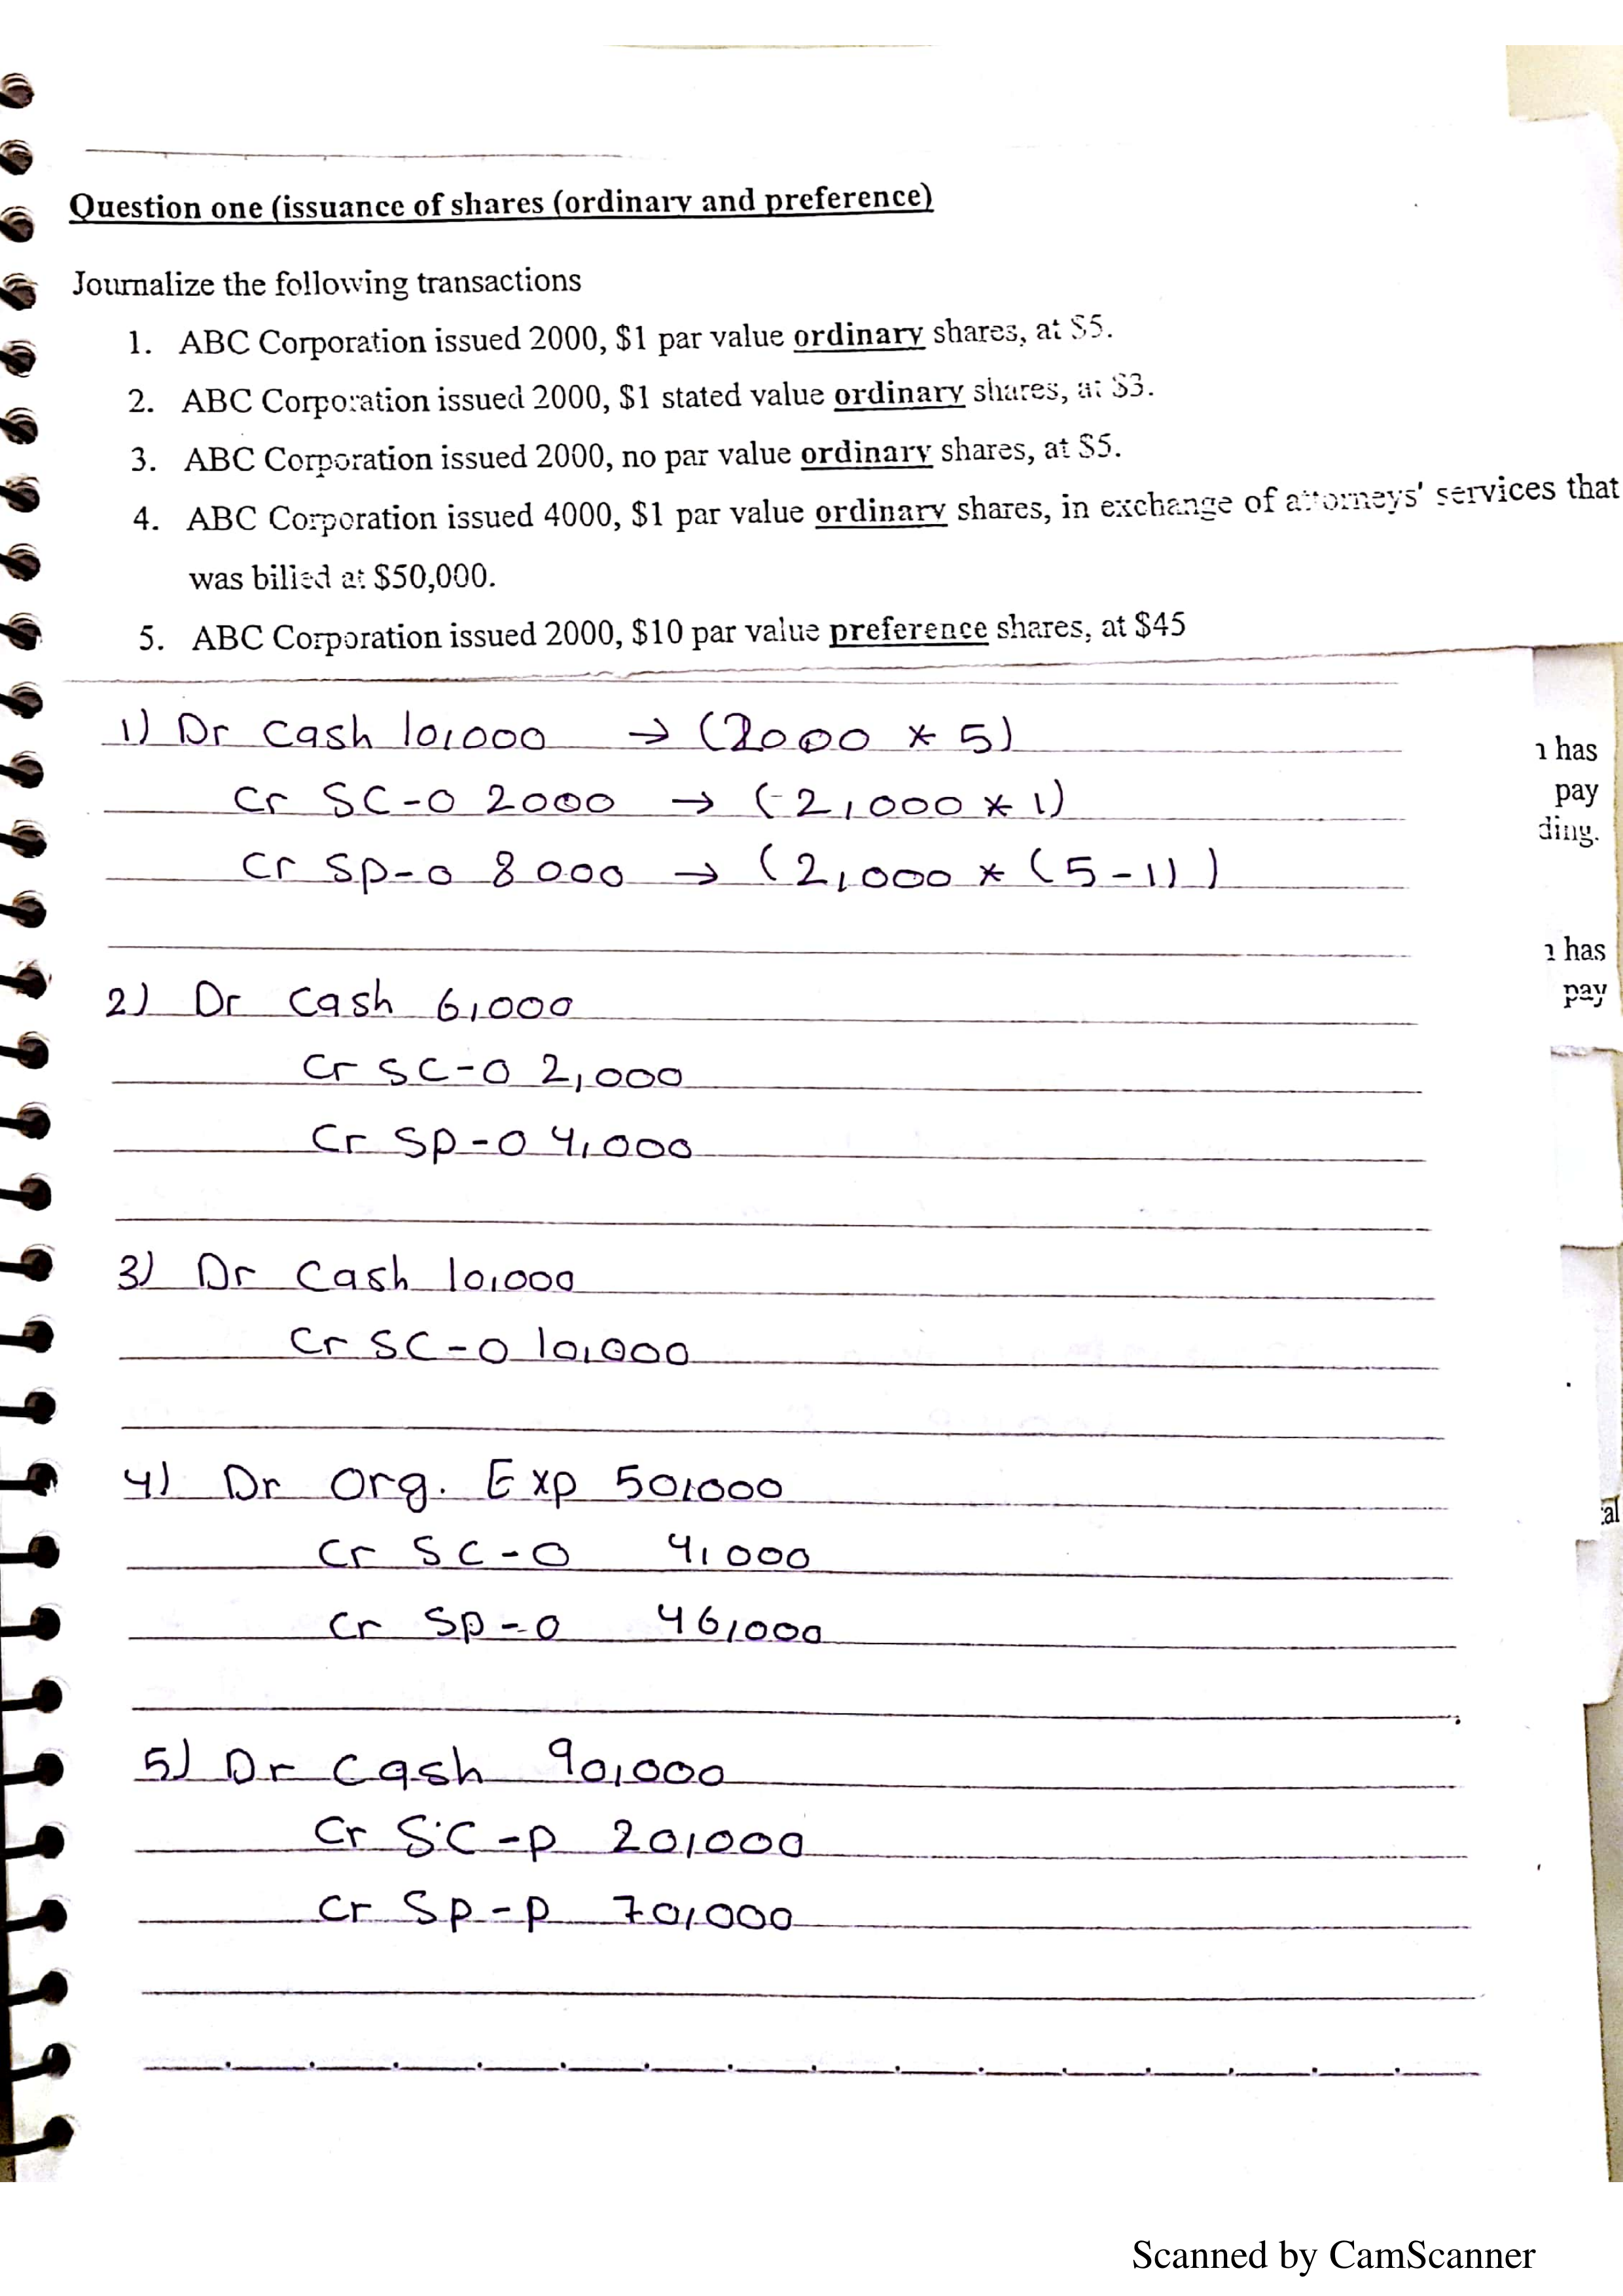 Question one (issuance of shares (ordinary and preference)
Journalize the following transactions
1. ABC Corporation issued 2000, $1 par value ordinary shares, at $5.
2. ABC Corporation issued 2000, $1 stated value ordinary shares, at $3.
3. ABC Corporation issued 2000, no par value ordinary shares, at $5.
4. ABC Corporation issued 4000, $1 par value ordinary shares, in exchange of attorneys' services that
was billed at $50,000.
5. ABC Corporation issued 2000, $10 par value preference shares, at $45
1) Dr Cash 10,000 → (2000 * 5)
Cr SC-O 2000 → (2,000 * 1)
Cr SP-O 8000 → (2,000 * (5-1))
has
pay
ding.
2) Dr Cash 6,000
Cr SC-O 2,000
Cr SP-O 4,000
has
pay
3) Dr Cash 10,000
Cr SC-O 10,000
4) Dr Org. Exp 50,000
Cr SC-O 4,000
Cr SP-O 46,000
al
5) Dr Cash 90,000
Cr SC-P 20,000
Cr SP-P 70,000
Scanned by CamScanner